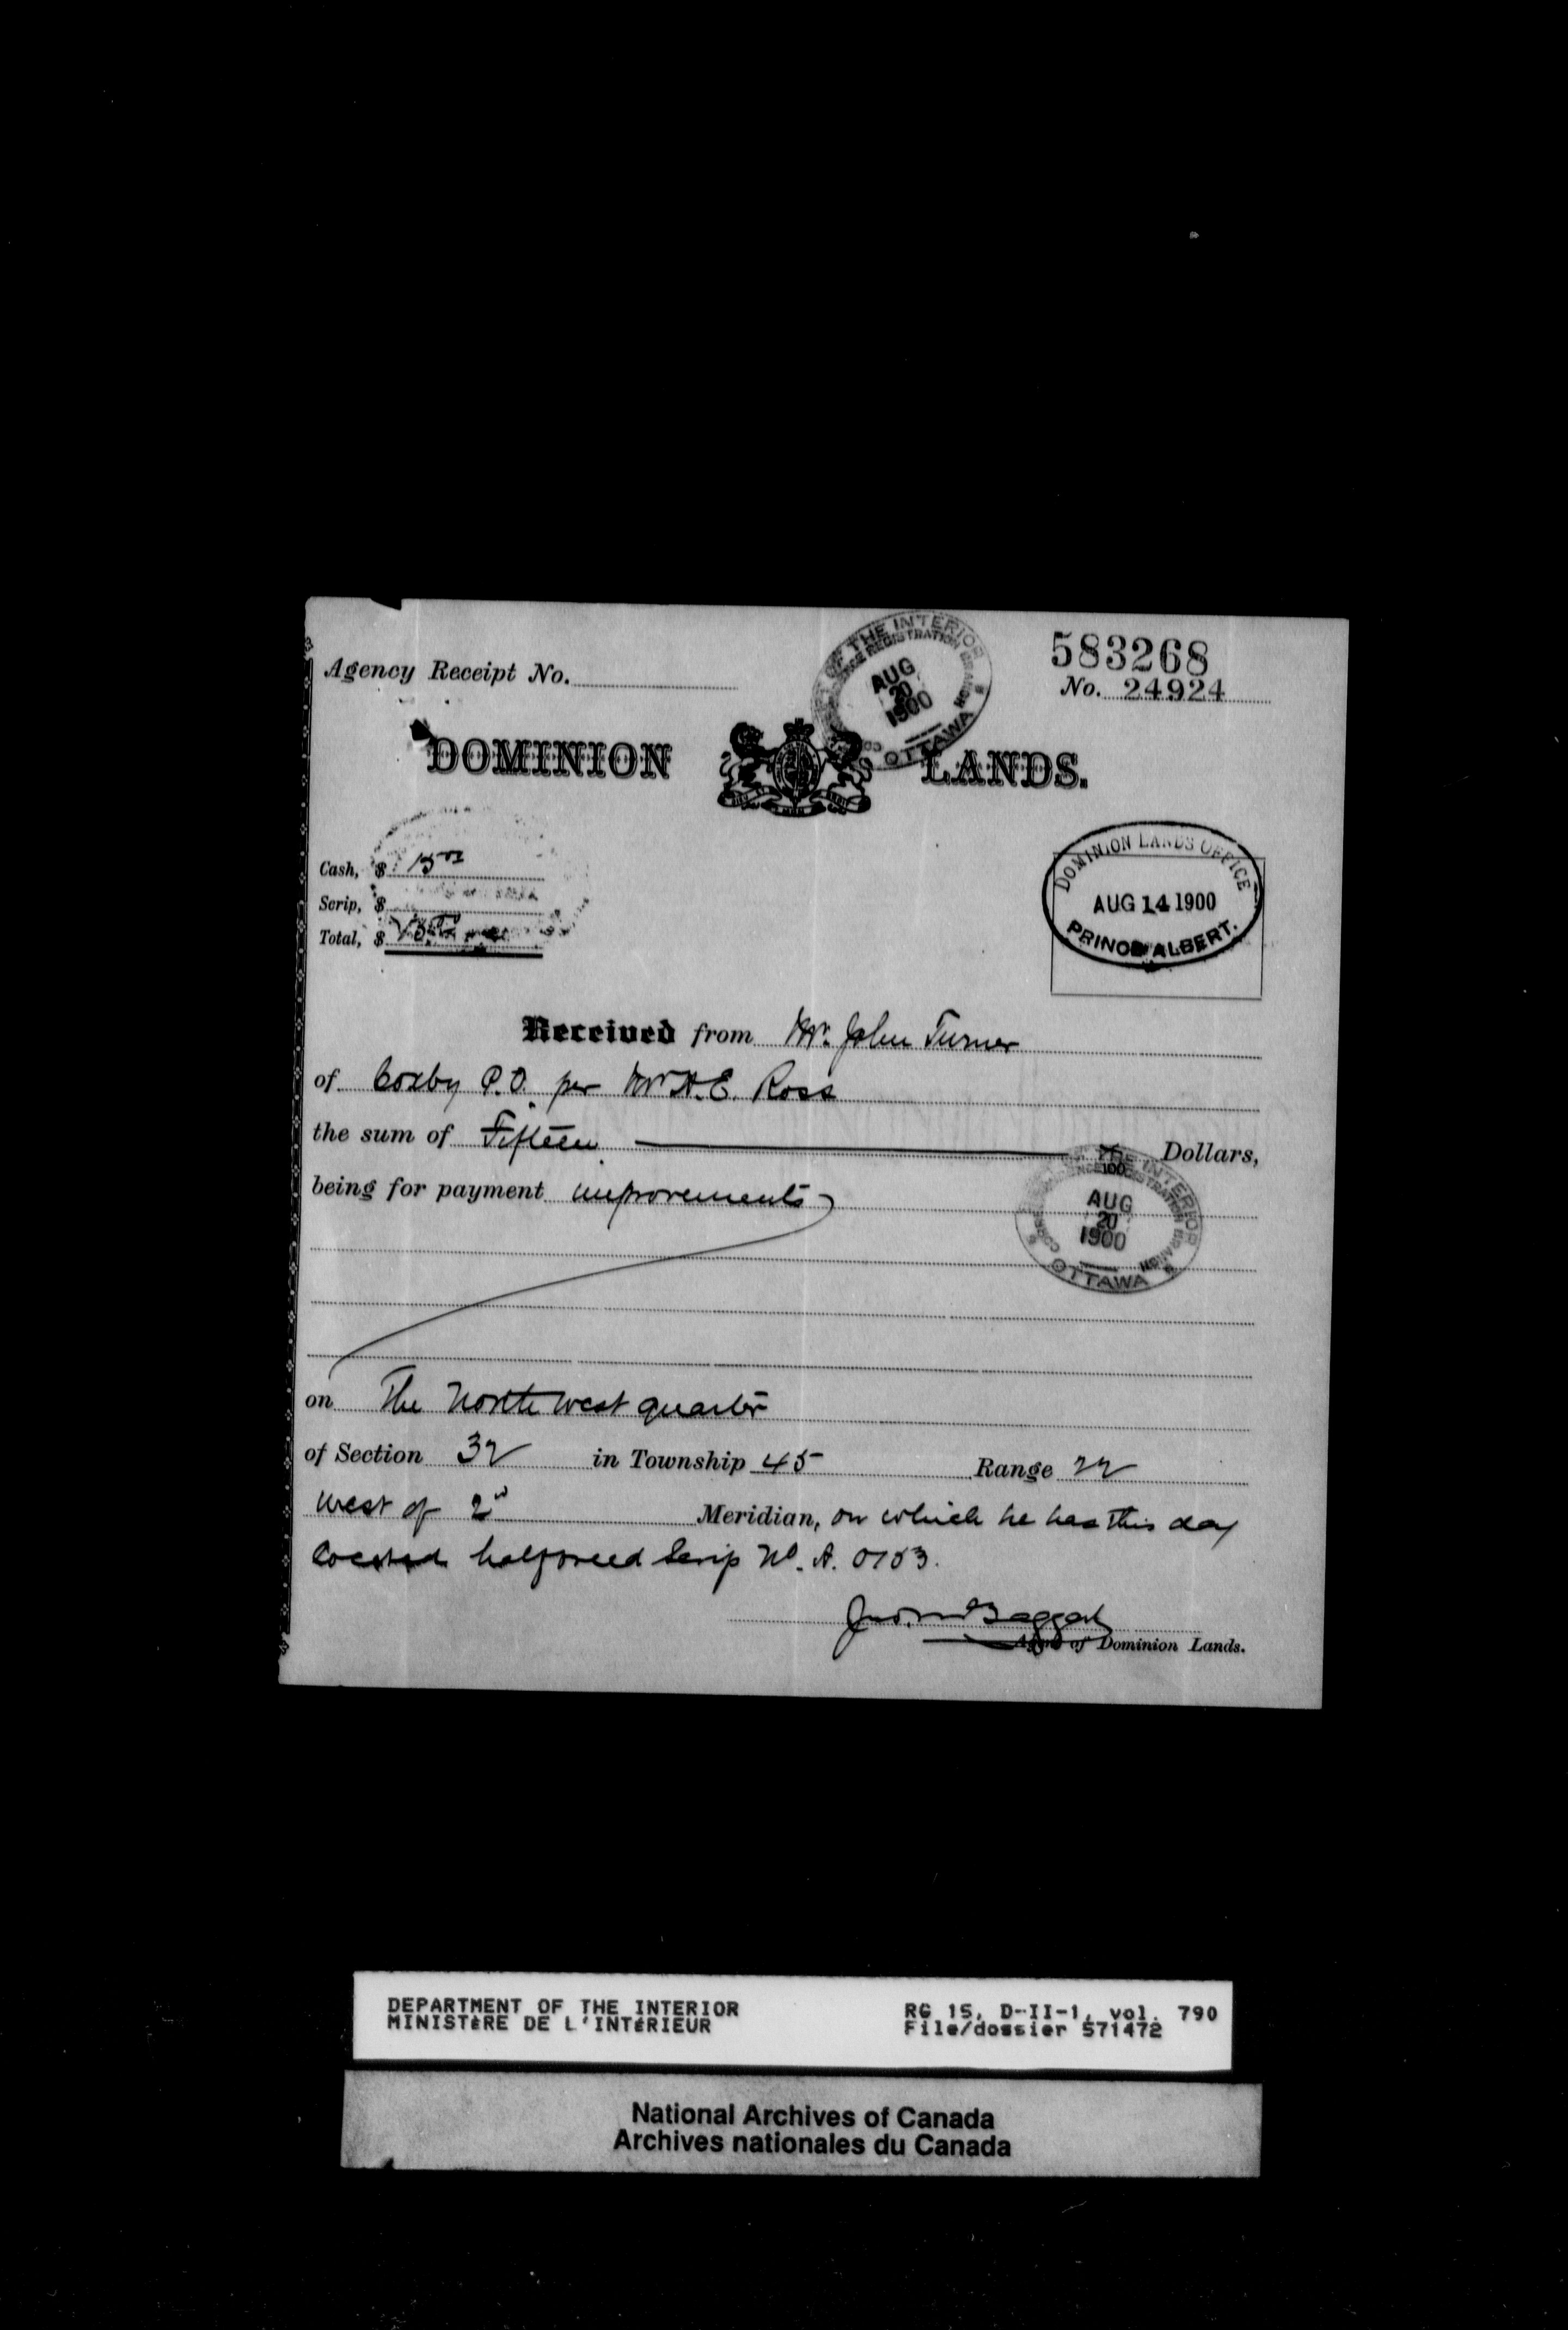 583268
Agency Receipt No.
No. 24924
OF THE INTERIOR
REGISTRATION BRANCH
AUG
20
1900
OTTAWA
DOMINION LANDS.
Cash, $ 15
Scrip, $
Total, $ 15
DOMINION LANDS OFFICE
AUG 14 1900
PRINCE ALBERT.
Received from Mr. John Turner
of Coxby P.O. per Mr. A.E. Ross
the sum of Fifteen Dollars,
100
being for payment improvements
THE INTERIOR
REGISTRATION BRANCH
AUG
20
1900
OTTAWA
on The North West quarter
of Section 32 in Township 45 Range 22
West of 2d Meridian, on which he has this day
located halfbreed Scrip No. A. 0153.
Agent of Dominion Lands.
DEPARTMENT OF THE INTERIOR
MINISTèRE DE L'INTéRIEUR
RG 15, D-II-1, vol. 790
File/dossier 571472
National Archives of Canada
Archives nationales du Canada